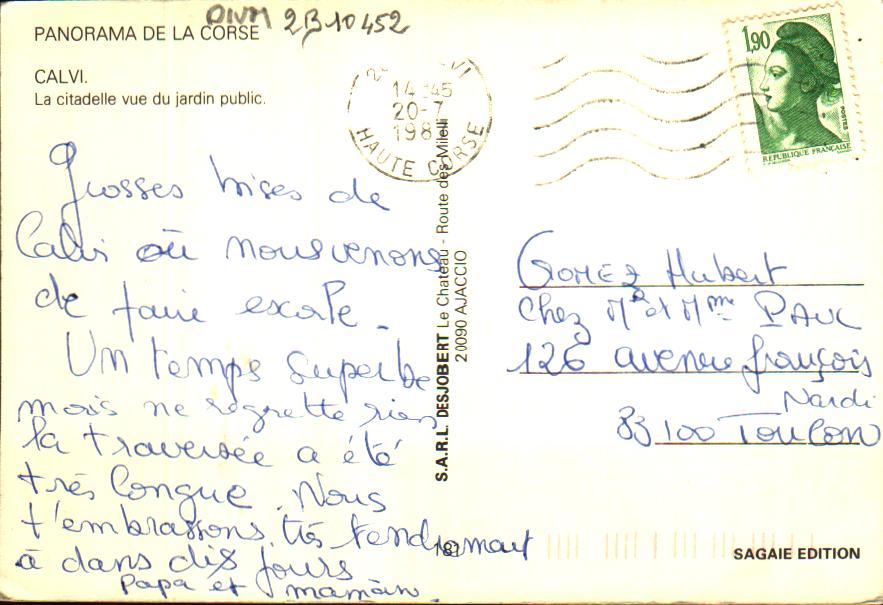 DIVM 2B10452
PANORAMA DE LA CORSE
CALVI.
La citadelle vue du jardin public.
14-45
20-7
198
HAUTE CORSE
1,90
POSTES
REPUBLIQUE FRANÇAISE
Grosses bises de
Calvi où nous venons
de faire escale.
Un temps superbe
mais ne regrette rien
la traversée a été
très longue. Nous
t'embrassons très tendrement
à dans dix jours
Papa et maman.
S.A.R.L. DESJOBERT Le Chateau - Route des Milelli
20090 AJACCIO
GOMEZ Hubert
Chez Mr et Mme PAUL
126 avenue françois
Nardi
83100 TOULON
181
SAGAIE EDITION